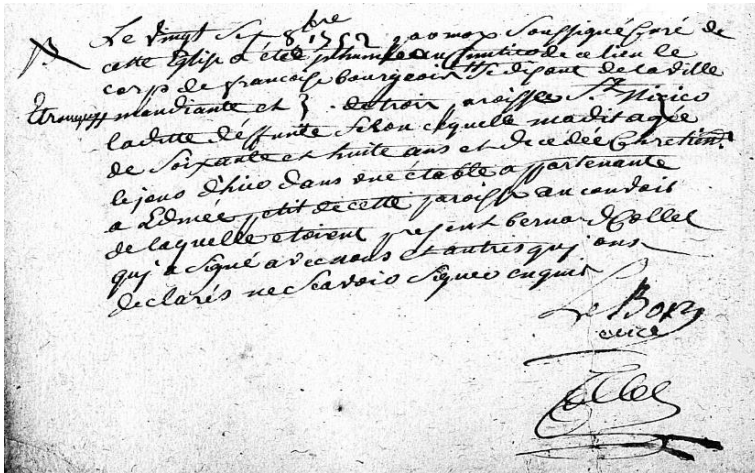 Le vingt sept 8bre 1752 par moy Soussigné Curé de
cette Eglise a été inhumée au Cimetiere de ce lieu le
corp de francoise bourgeois se disant de la ville
mandiante et de troix paroisse St Nizico
laditte déffunte Selon ce quelle madit agée
de Soixante et huite ans et décedée Chretien.
le jour d'hier dans une étable appartenante
a Edmée petit de cette paroisse au convois
de laquelle etoient present bernard Collet
quj a signé avec nous et autres quj ons
declarés ne Scavoir Signer enquis
Le Bon
curé
Collet